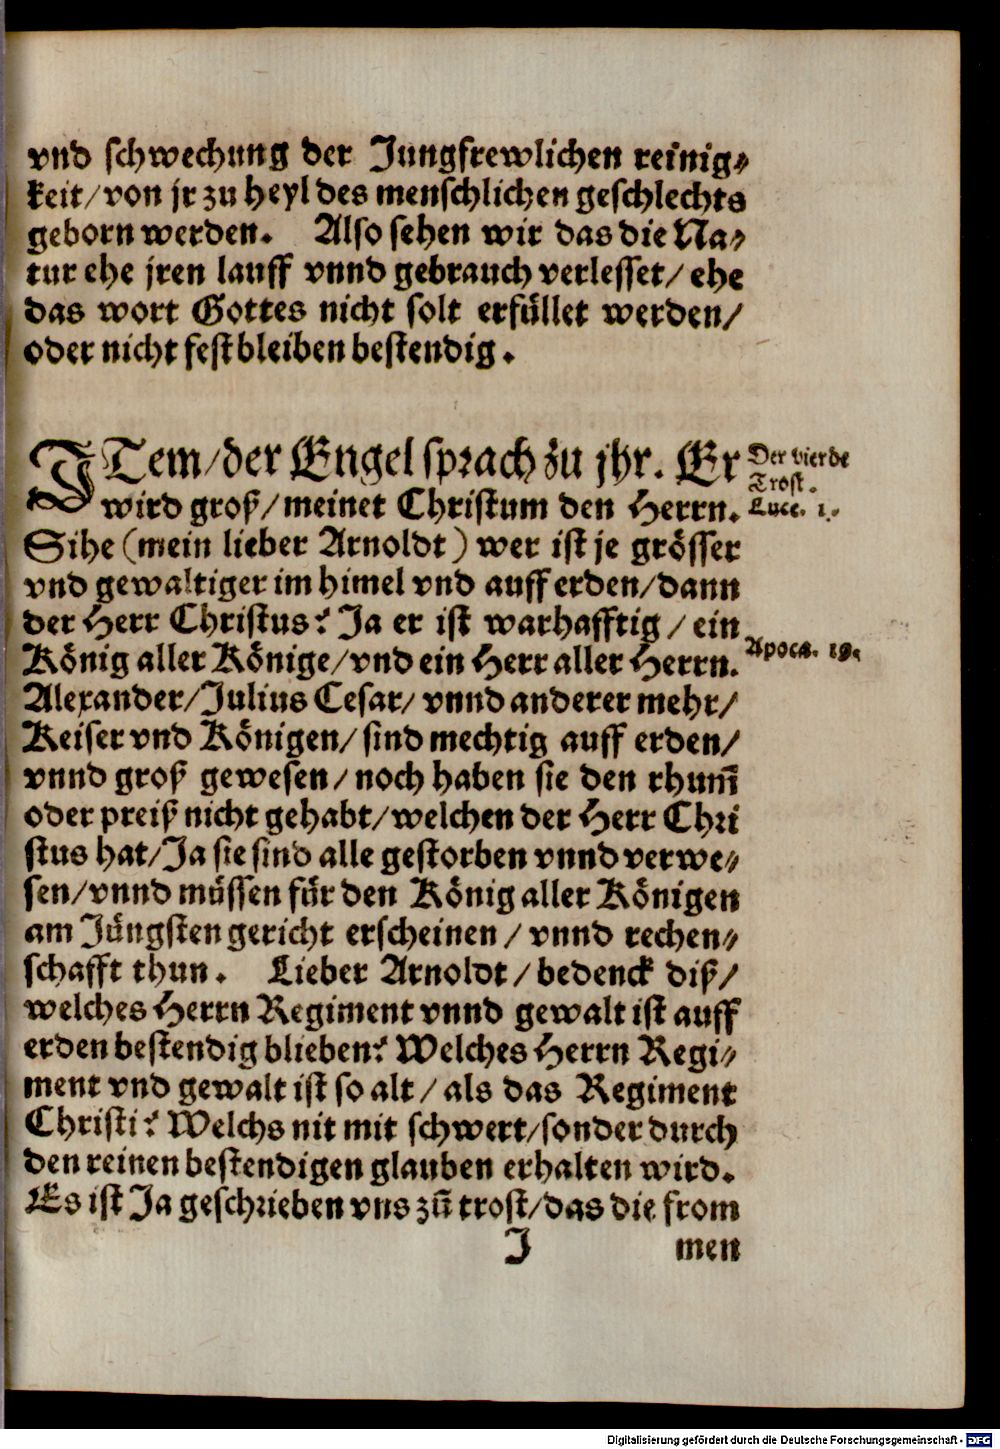 vnd schwechung der Jungfrewlichen reinig⸗
keit/von jr zu heyl des menschlichen geschlechts
geborn werden. Also sehen wir das die Na⸗
tur ehe jren lauff vnnd gebrauch verlesset/ ehe
das wort Gottes nicht solt erfüllet werden/
oder nicht fest bleiben bestendig.
ITem/der Engel sprach zu jhr. Er
wird groß/ meinet Christum den Herrn.
Sihe (mein lieber Arnoldt) wer ist je grösser
vnd gewaltiger im himel vnd auff erden/dann
der Herr Christus? Ja er ist warhafftig / ein
König aller Könige/vnd ein Herr aller Herrn.
Alexander/Julius Cesar/ vnnd anderer mehr/
Keiser vnd Königen/ sind mechtig auff erden/
vnnd groß gewesen/ noch haben sie den rhum̄
oder preiß nicht gehabt/welchen der Herr Chri
stus hat/Ja sie sind alle gestorben vnnd verwe⸗
sen/vnnd müssen für den König aller Königen
am Jüngsten gericht erscheinen / vnnd rechen⸗
schafft thun. Lieber Arnoldt / bedenck diß/
welches Herrn Regiment vnnd gewalt ist auff
erden bestendig blieben? Welches Herrn Regi⸗
ment vnd gewalt ist so alt / als das Regiment
Christi? Welchs nit mit schwert/sonder durch
den reinen bestendigen glauben erhalten wird.
Es ist Ja geschrieben vns zū trost/das die from
J men
Der vierde
Trost.
Luce. 1.
Apoca. 19.
Digitalisierung gefördert durch die Deutsche Forschungsgemeinschaft - DFG